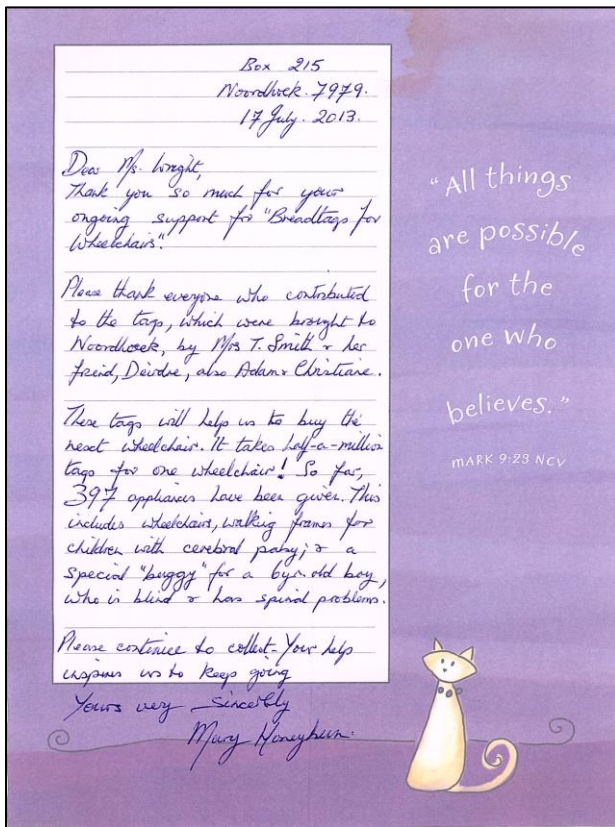 Box 215
Noordhoek. 7979.
17 July. 2013.
Dear Ms. Wright,
Thank you so much for your
ongoing support for "Breadtags for
Wheelchairs".
Please thank everyone who contributed
to the tags, which were brought to
Noordhoek, by Mrs T. Smith & her
friend, Deirdre, also Adam & Christiane.
These tags will help us to buy the
next wheelchair. It takes half-a-million
tags for one wheelchair! So far,
397 appliances have been given. This
includes wheelchairs, walking frames for
children with cerebral palsy; & a
special "buggy" for a 6yr. old boy,
who is blind & has spinal problems.
Please continue to collect - Your help
inspires us to keep going
Yours very sincerely
Mary Honeybun.
"All things
are possible
for the
one who
believes."
MARK 9:23 NCV